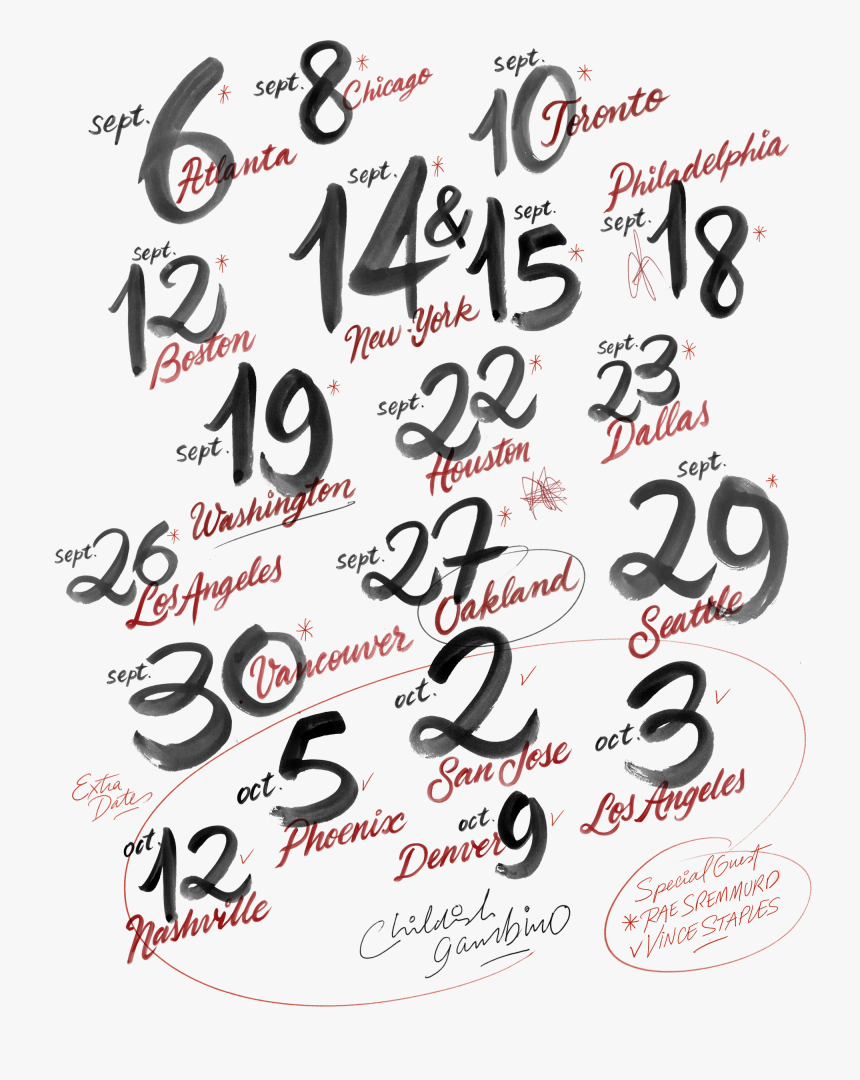 sept. 6 * Atlanta
sept. 8 * Chicago
sept. 10 * Toronto
sept. 12 * Boston
sept. 14 * & sept. 15 * New York
Philadelphia sept. 18 *
sept. 19 * Washington
sept. 22 * Houston
sept. 23 * Dallas
sept. 26 * Los Angeles
sept. 27 * Oakland
sept. 29 * Seattle
sept. 30 * Vancouver
oct. 2 ✓ San Jose
oct. 3 ✓ Los Angeles
Extra
Dates
oct. 5 ✓ Phoenix
oct. 9 ✓ Denver
oct. 12 ✓ Nashville
Childish
gambino
Special Guest
* RAE SREMMURD
✓ VINCE STAPLES